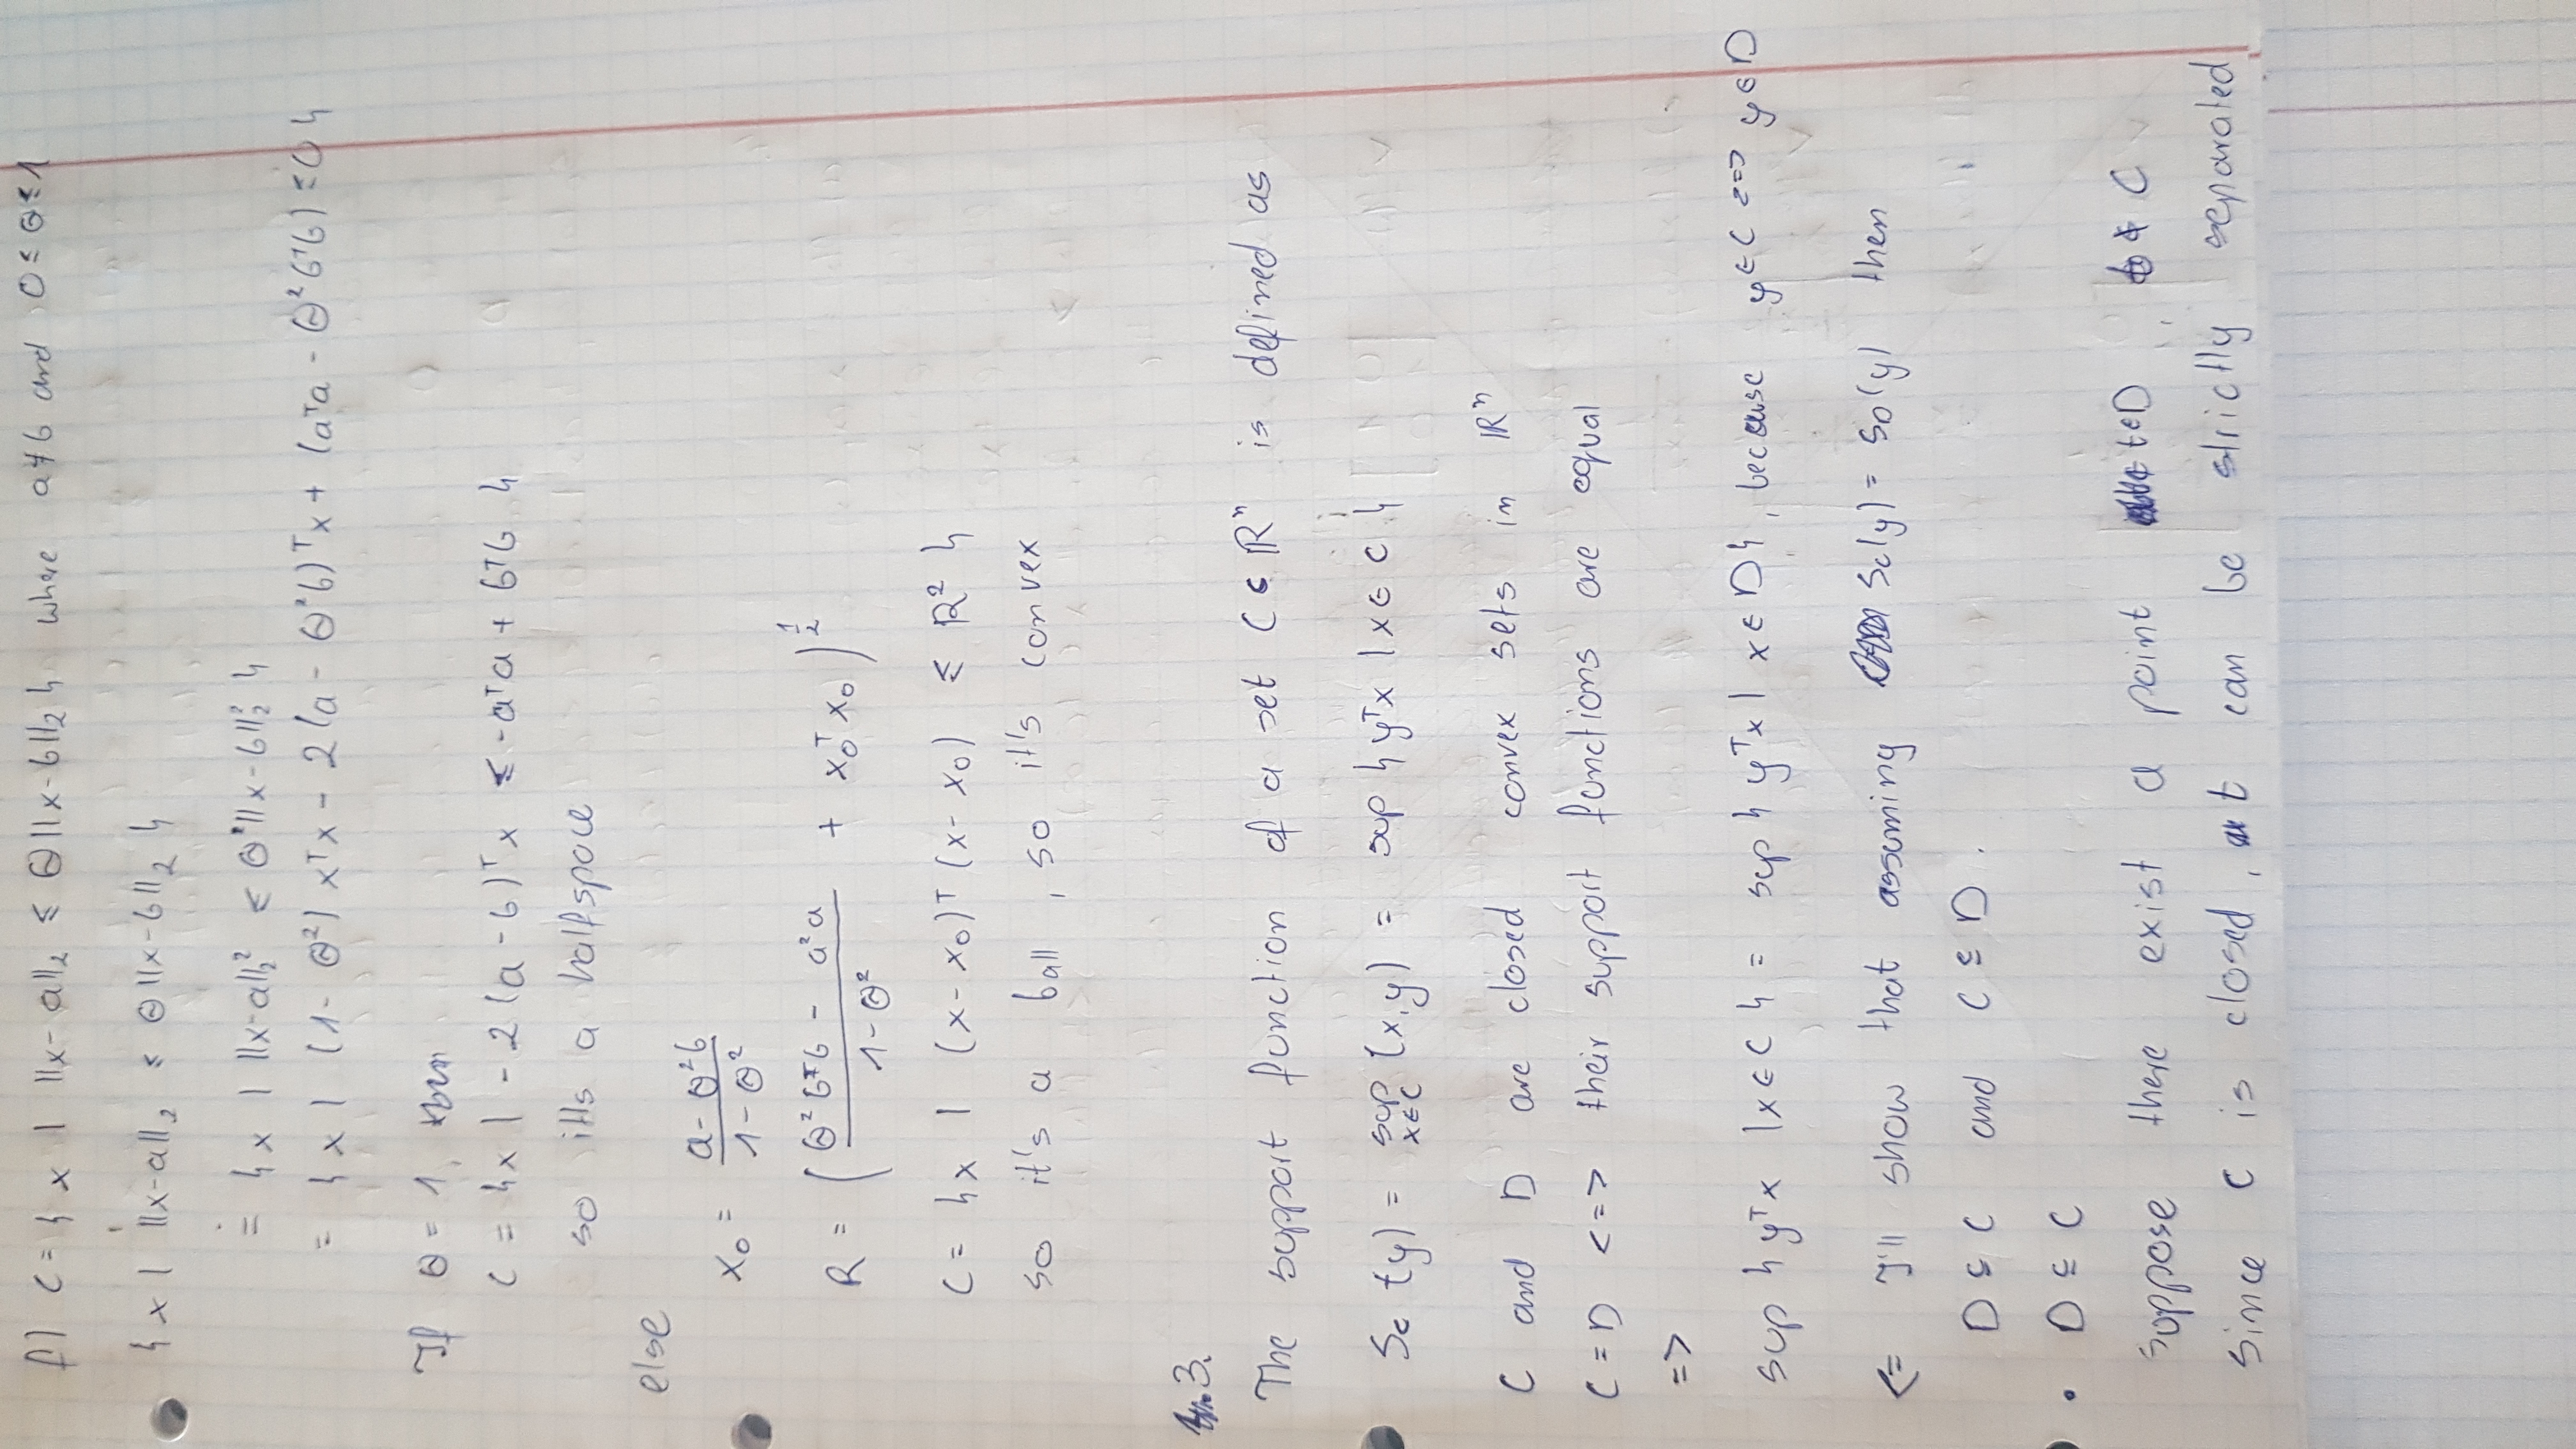 f) C = { x | ||x-a||₂ ≤ Θ||x-b||₂ } where a≠b and 0≤Θ≤1
{ x | ||x-a||₂ ≤ Θ||x-b||₂ }
= { x | ||x-a||₂² ≤ Θ²||x-b||₂² }
= { x | (1-Θ²) xᵀx - 2(a-Θ²b)ᵀx + (aᵀa - Θ²bᵀb) ≤ 0 }
If Θ = 1, then
C = { x | -2(a-b)ᵀx ≤ -aᵀa + bᵀb }
so it's a halfspace
else
x₀ = (a-Θ²b)/(1-Θ²)
R = ( (Θ²bᵀb - a²a)/(1-Θ²) + x₀ᵀx₀ )^(1/2)
C = { x | (x-x₀)ᵀ(x-x₀) ≤ R² }
so it's a ball, so it's convex
3.
The support function of a set C ⊂ ℝⁿ is defined as
Sc(y) = sup x∈C (x,y) = sup { yᵀx | x∈C }
C and D are closed convex sets in ℝⁿ
C = D <=> their support functions are equal
=>
sup { yᵀx | x∈C } = sup { yᵀx | x∈D }, because y∈C <=> y∈D
<= I'll show that assuming Sc(y) = S_D(y) then
D ⊆ C and C ⊆ D.
• D ⊆ C
suppose there exist a point t∈D, t∉C
since C is closed, t can be strictly separated